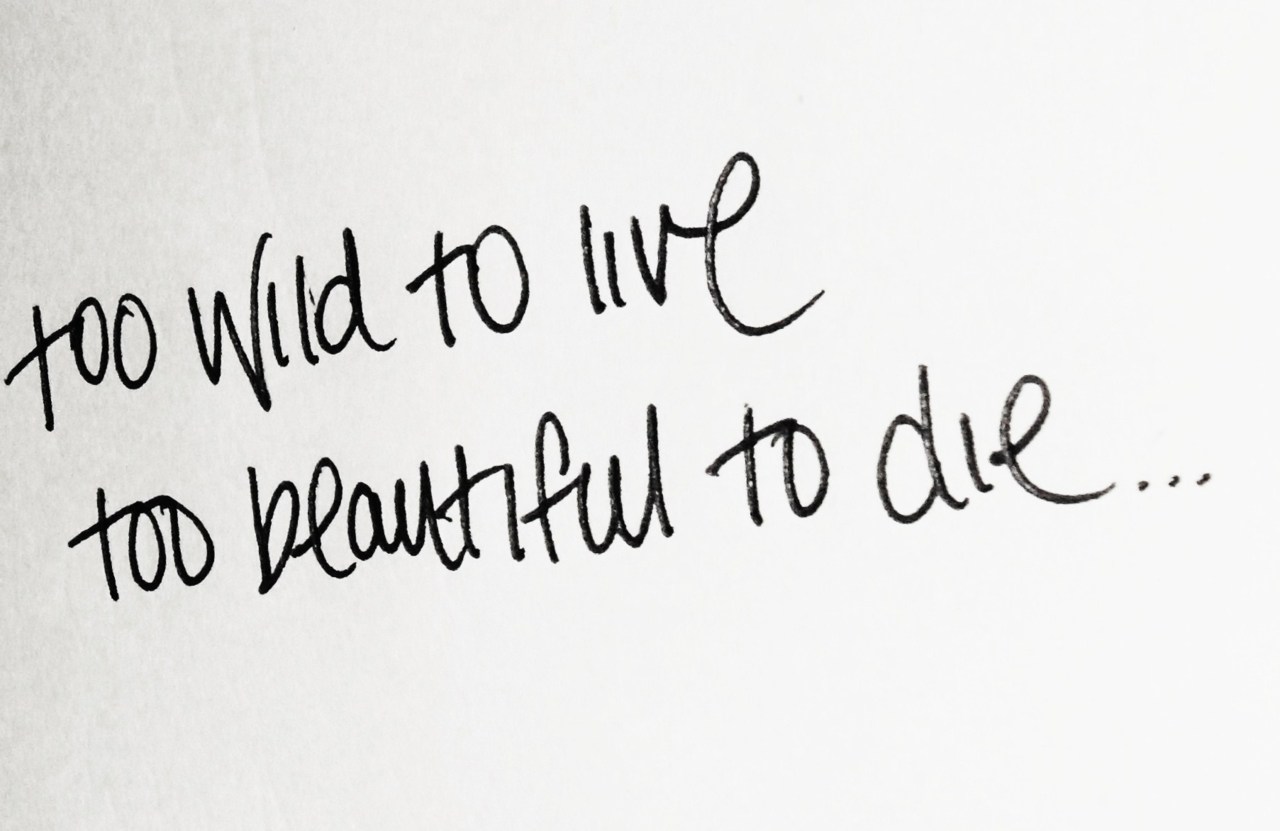 too wild to live
too beautiful to die...